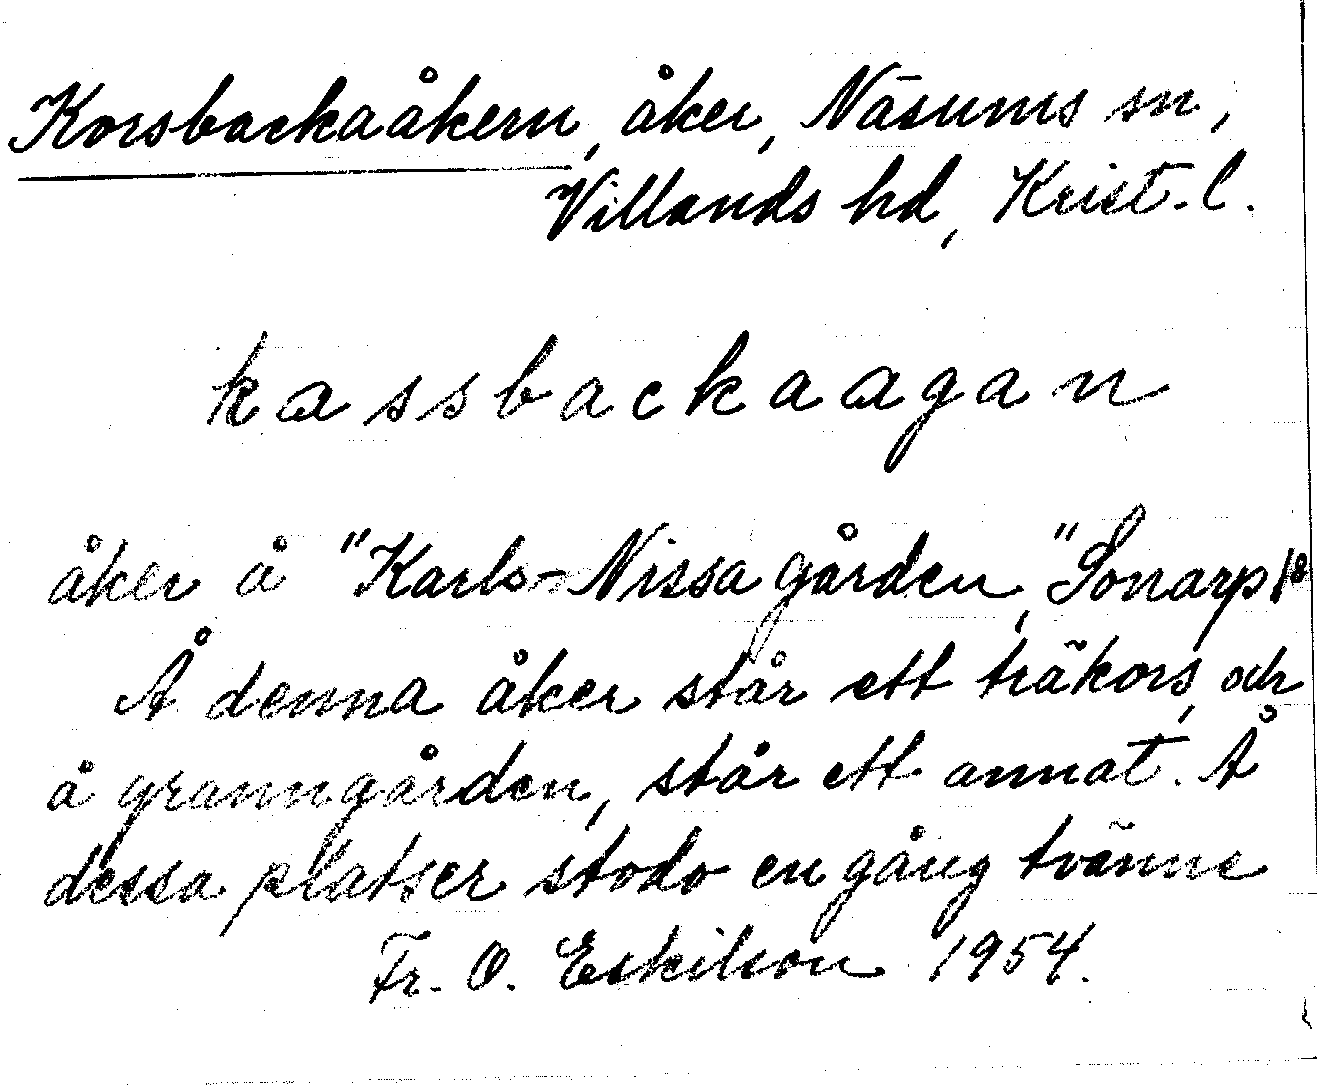 Korsbackaåkern, åker, Näsums sn,
Villands hd, Krist. l.
kassbackaagan
åker å "Karls-Nissagården," Sonarp 1⁸
Å denna åker står ett träkors, och
å granngården, står ett annat. Å
dessa platser stodo en gång tvänne
Fr. O. Eskilson 1954.